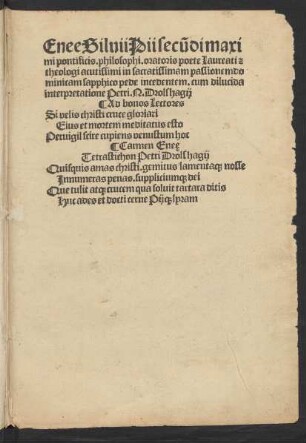 Enee Silvii Pii secūdi maxi
mi pontificis. philosophi. oratoris poete laureati ⁊
theologi acutissimi in sacratissimam passionem do
minicam sapphico pede incedentem. cum dilucida
interpretatione Petri. N. Drolshagij
¶ Ad bonos Lectores
Si velis christi cruce gloriari
Eius et mortem meditatus esto
Pervigil scire cupiens venustum hoc
¶ Carmen Eneę
Tetrastichon Petri Drolshagij
Quisquis amas christi. gemitus lamentaque nosse
Innumeras penas. suppliciumque dei
Que tulit atque crucem qua soluit tartara ditis
Huc ades et docti cerne Pijque lyram